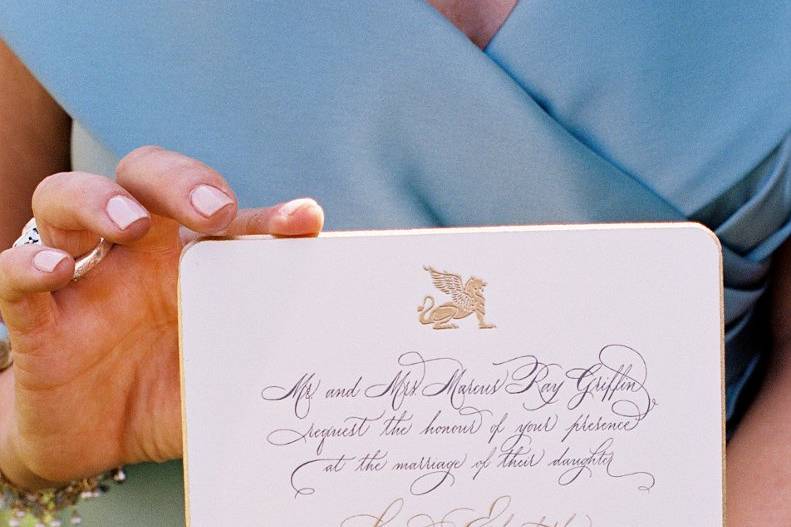 Mr and Mrs Marcus Ray Griffin
request the honour of your presence
at the marriage of their daughter